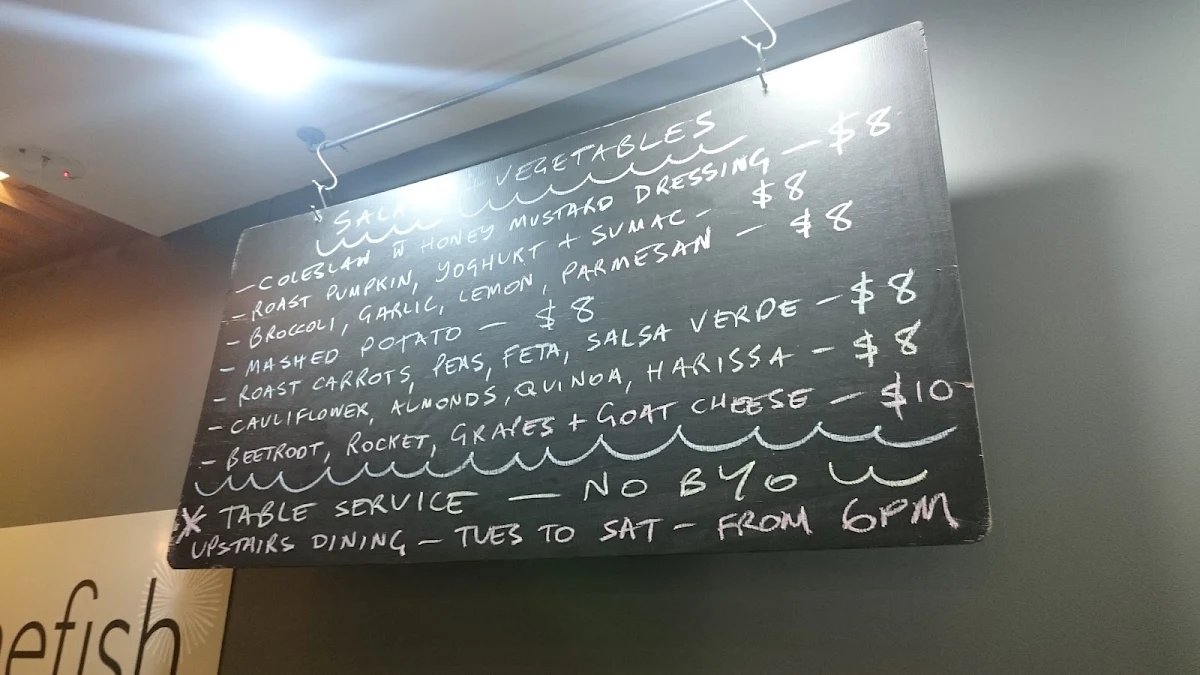 VEGETABLES
- COLESLAW W HONEY MUSTARD DRESSING - $8
- ROAST PUMPKIN, YOGHURT + SUMAC - $8
- BROCCOLI, GARLIC, LEMON, PARMESAN - $8
- MASHED POTATO - $8
- ROAST CARROTS, PEAS, FETA, SALSA VERDE - $8
- CAULIFLOWER, ALMONDS, QUINOA, HARISSA - $8
- BEETROOT, ROCKET, GRAPES + GOAT CHEESE - $10
* TABLE SERVICE - NO BYO
UPSTAIRS DINING - TUES TO SAT - FROM 6PM